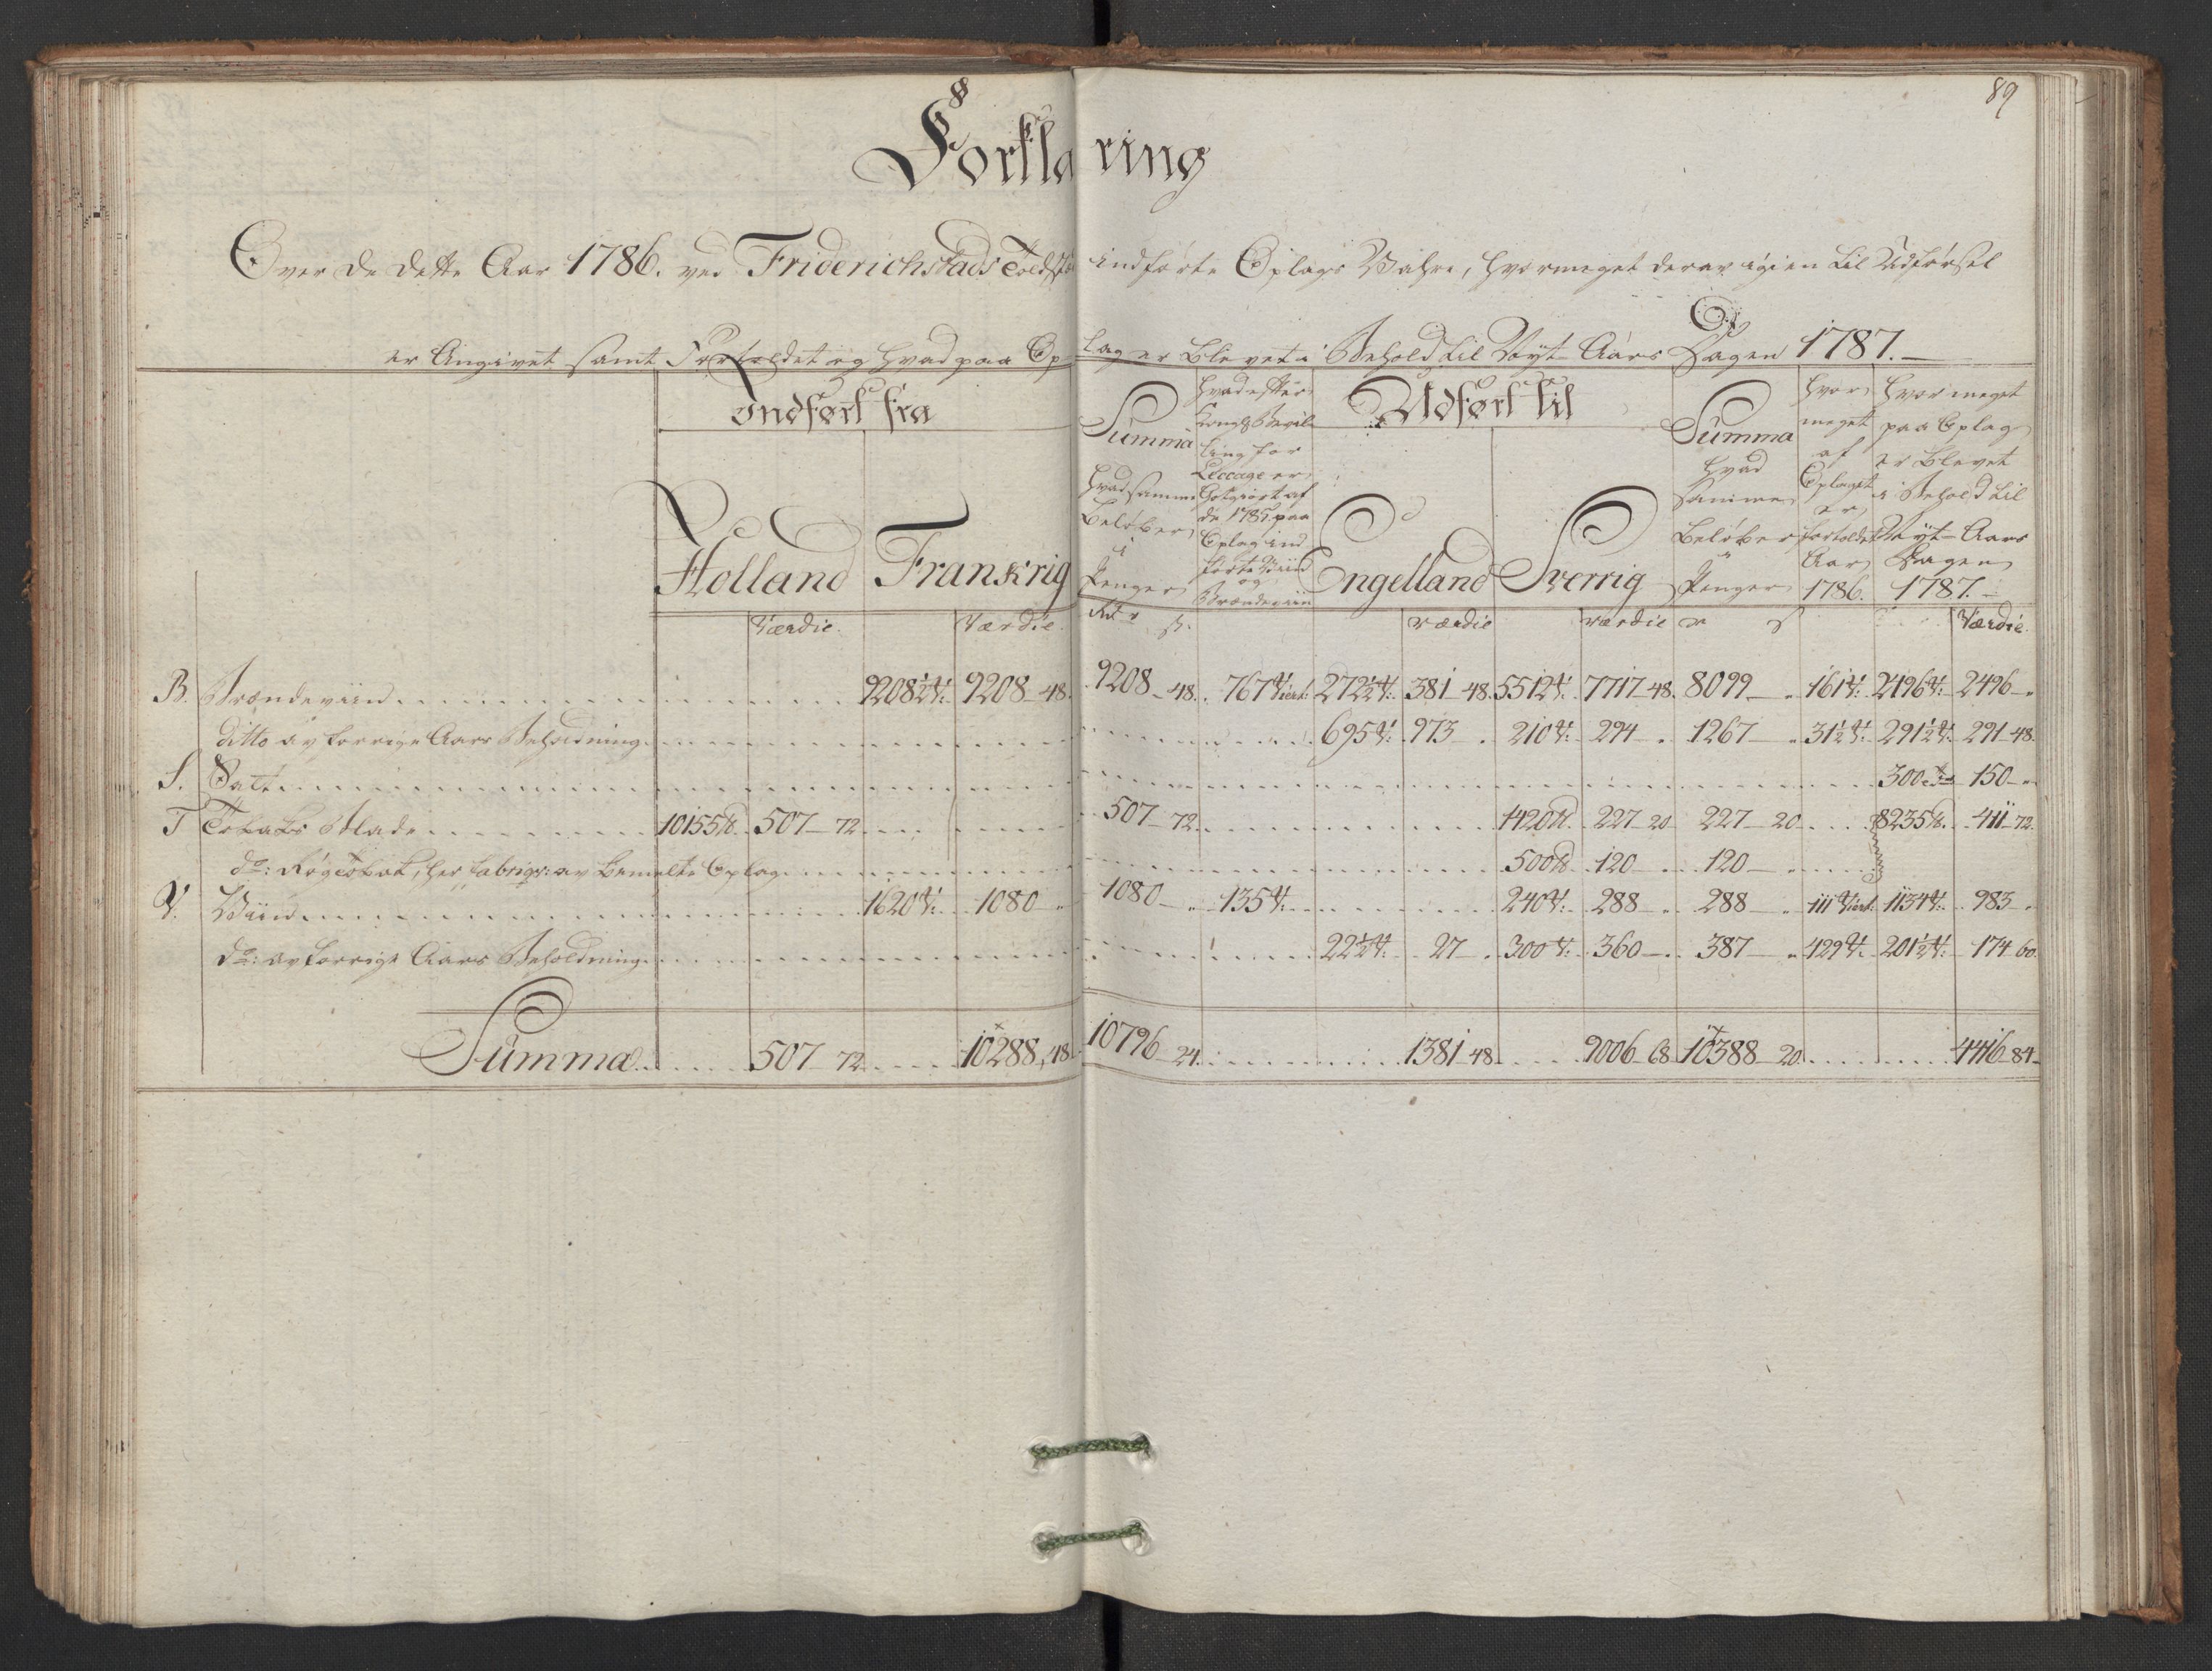 89
Forklaring
Over de dette Aar 1786. ved Friderichstads Toldsted indførte Oplags Wahre, hvormeget derav igien til Udførsel
er Angivet samt Fortoldet og hvad paa Oplag er blevet i Behold til Nyt-Aars Dagen 1787.
Indført fra
Holland
Værdie.
Frankrig
Værdie.
Summa
hvad samme
beløber
i
Penger
hvad efter
Kongl. Bevil-
ling for
Leccage er
Godgiort af
de 1785 paa
Oplag ind
førte Viin
og
Brændeviin
Udført til
Engelland
værdie
Sverrig
værdie
Summa
hvad
samme
beløber
i
Penger
hvor
meget
af
Oplaget
er
fortoldet
Aar
1786.
hvor meget
paa Oplag
er blevet
i Behold til
Nyt-Aars
Dagen
1787.
Værdie.
B. Brændeviin 9208½ V: 9208-48. 9208-48. 767 Viert: 272½ V: 381-48. 5512 V: 7717-48. 8099 161 V: 2496 V: 2496
ditto av forrige Aars Beholdning 695 V: 973 210 V: 294 1267 31½ V: 291½ V: 291-48.
S. Salt 300 150
T Tobaks Blade 10155 ℔ 507-72 507-72 4420 ℔ 227-20 227-20 8235 ℔ 411-72
do: Røgtobak, her fabriqr: av bemelte Oplag 500 ℔ 120 120
V. Wiin 1620 V: 1080 1080 135 V: 240 V: 288 288 111 Viert: 1134 V: 983
do: av forrige Aars Beholdning 22½ V: 27 300 V: 360 387 429 V: 201½ V: 174 60
Summa 507-72 10288,48 10796-24 1381-48 9006-68 10388-20 4416-84